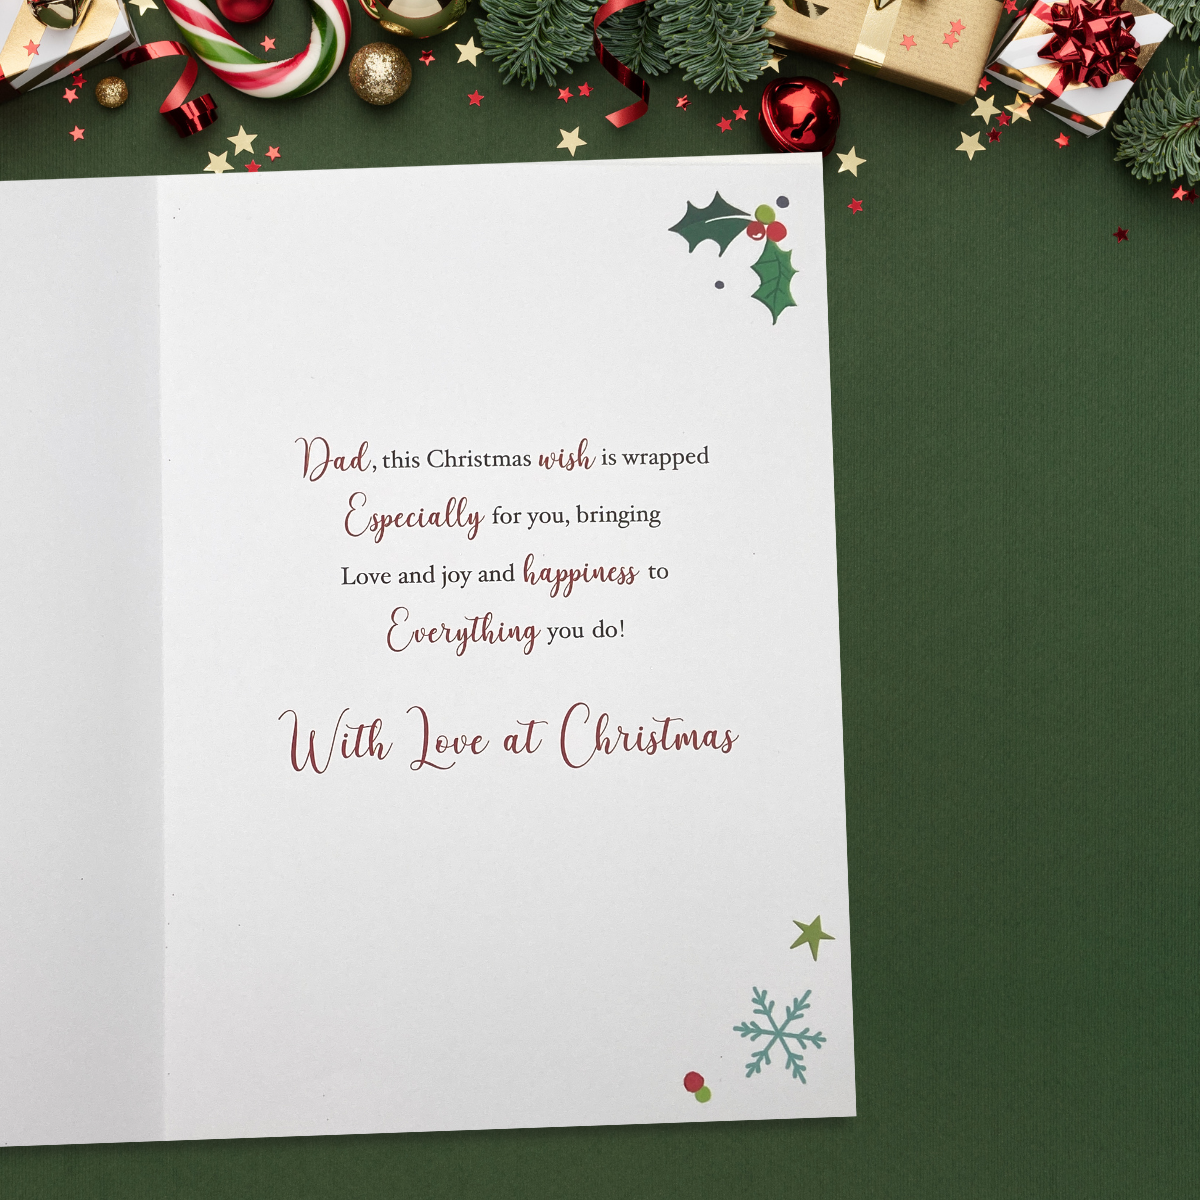 Dad, this Christmas wish is wrapped
Especially for you, bringing
Love and joy and happiness to
Everything you do!
With Love at Christmas